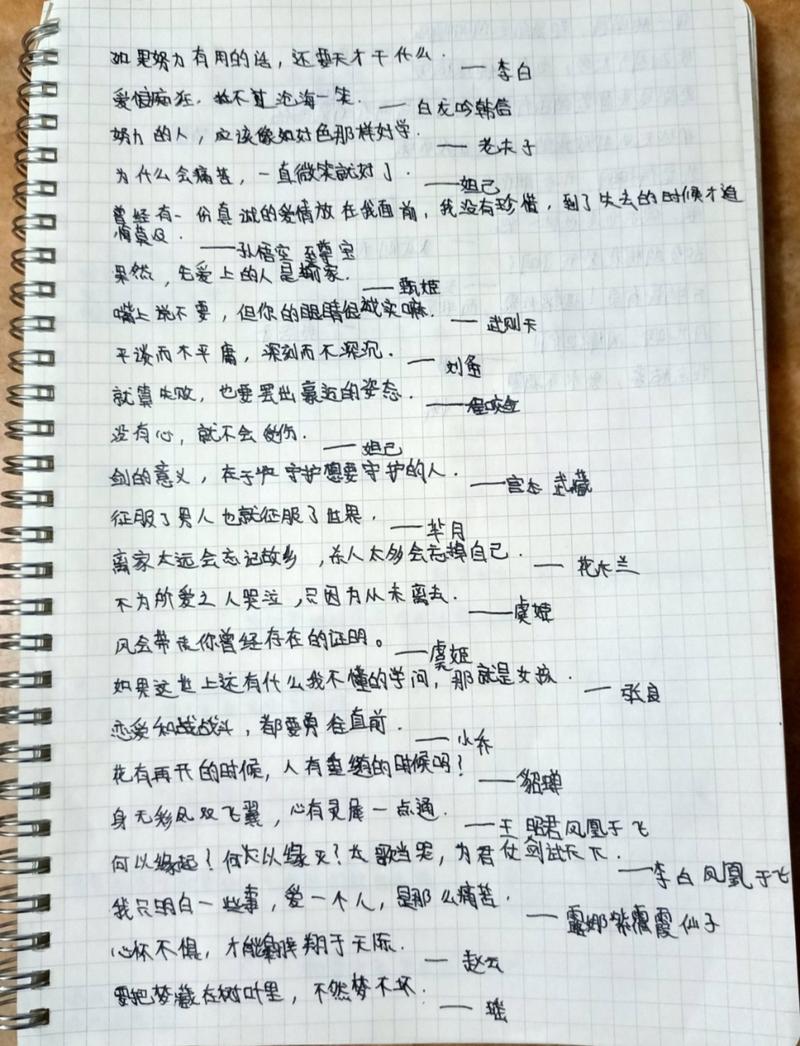 如果努力有用的话，还要天才干什么. —— 李白
爱恨痴狂，敌不过沧海一笑. —— 白龙吟韩信
努力的人，应该像如好色那样好学. —— 老夫子
为什么会痛苦，一直微笑就好了. ——妲己
曾经有一份真诚的爱情放在我面前，我没有珍惜，到了失去的时候才追
悔莫及. ——孙悟空 至尊宝
果然，先爱上的人是输家. ——甄姬
嘴上说不要，但你的眼睛很诚实嘛. —— 武则天
平淡而不平庸，深刻而不深沉. —— 刘备
就算失败，也要摆出豪迈的姿态. ——程咬金
没有心，就不会受伤. —— 妲己
剑的意义，在于守护想要守护的人. ——宫本 武藏
征服了男人也就征服了世界. ——芈月
离家太远会忘记故乡，杀人太多会忘掉自己. —— 花木兰
不为所爱之人哭泣，只因为从未离去. ——虞姬
风会带走你曾经存在的证明。——虞姬
如果这世上还有什么我不懂的学问，那就是女孩. —— 张良
恋爱和战战斗，都要勇往直前. —— 小乔
花有再开的时候，人有重逢的时候吗？——貂蝉
身无彩凤双飞翼，心有灵犀一点通. ——王昭君凤凰于飞
何以缘起？何以缘灭？长歌当哭，为君仗剑试天下. ——李白凤凰于飞
我只明白一些事，爱一个人，是那么痛苦. —— 露娜紫霞仙子
心怀不惧，才能翱翔于天际. —— 赵云
要把梦藏在树叶里，不然梦不坏. —— 瑶